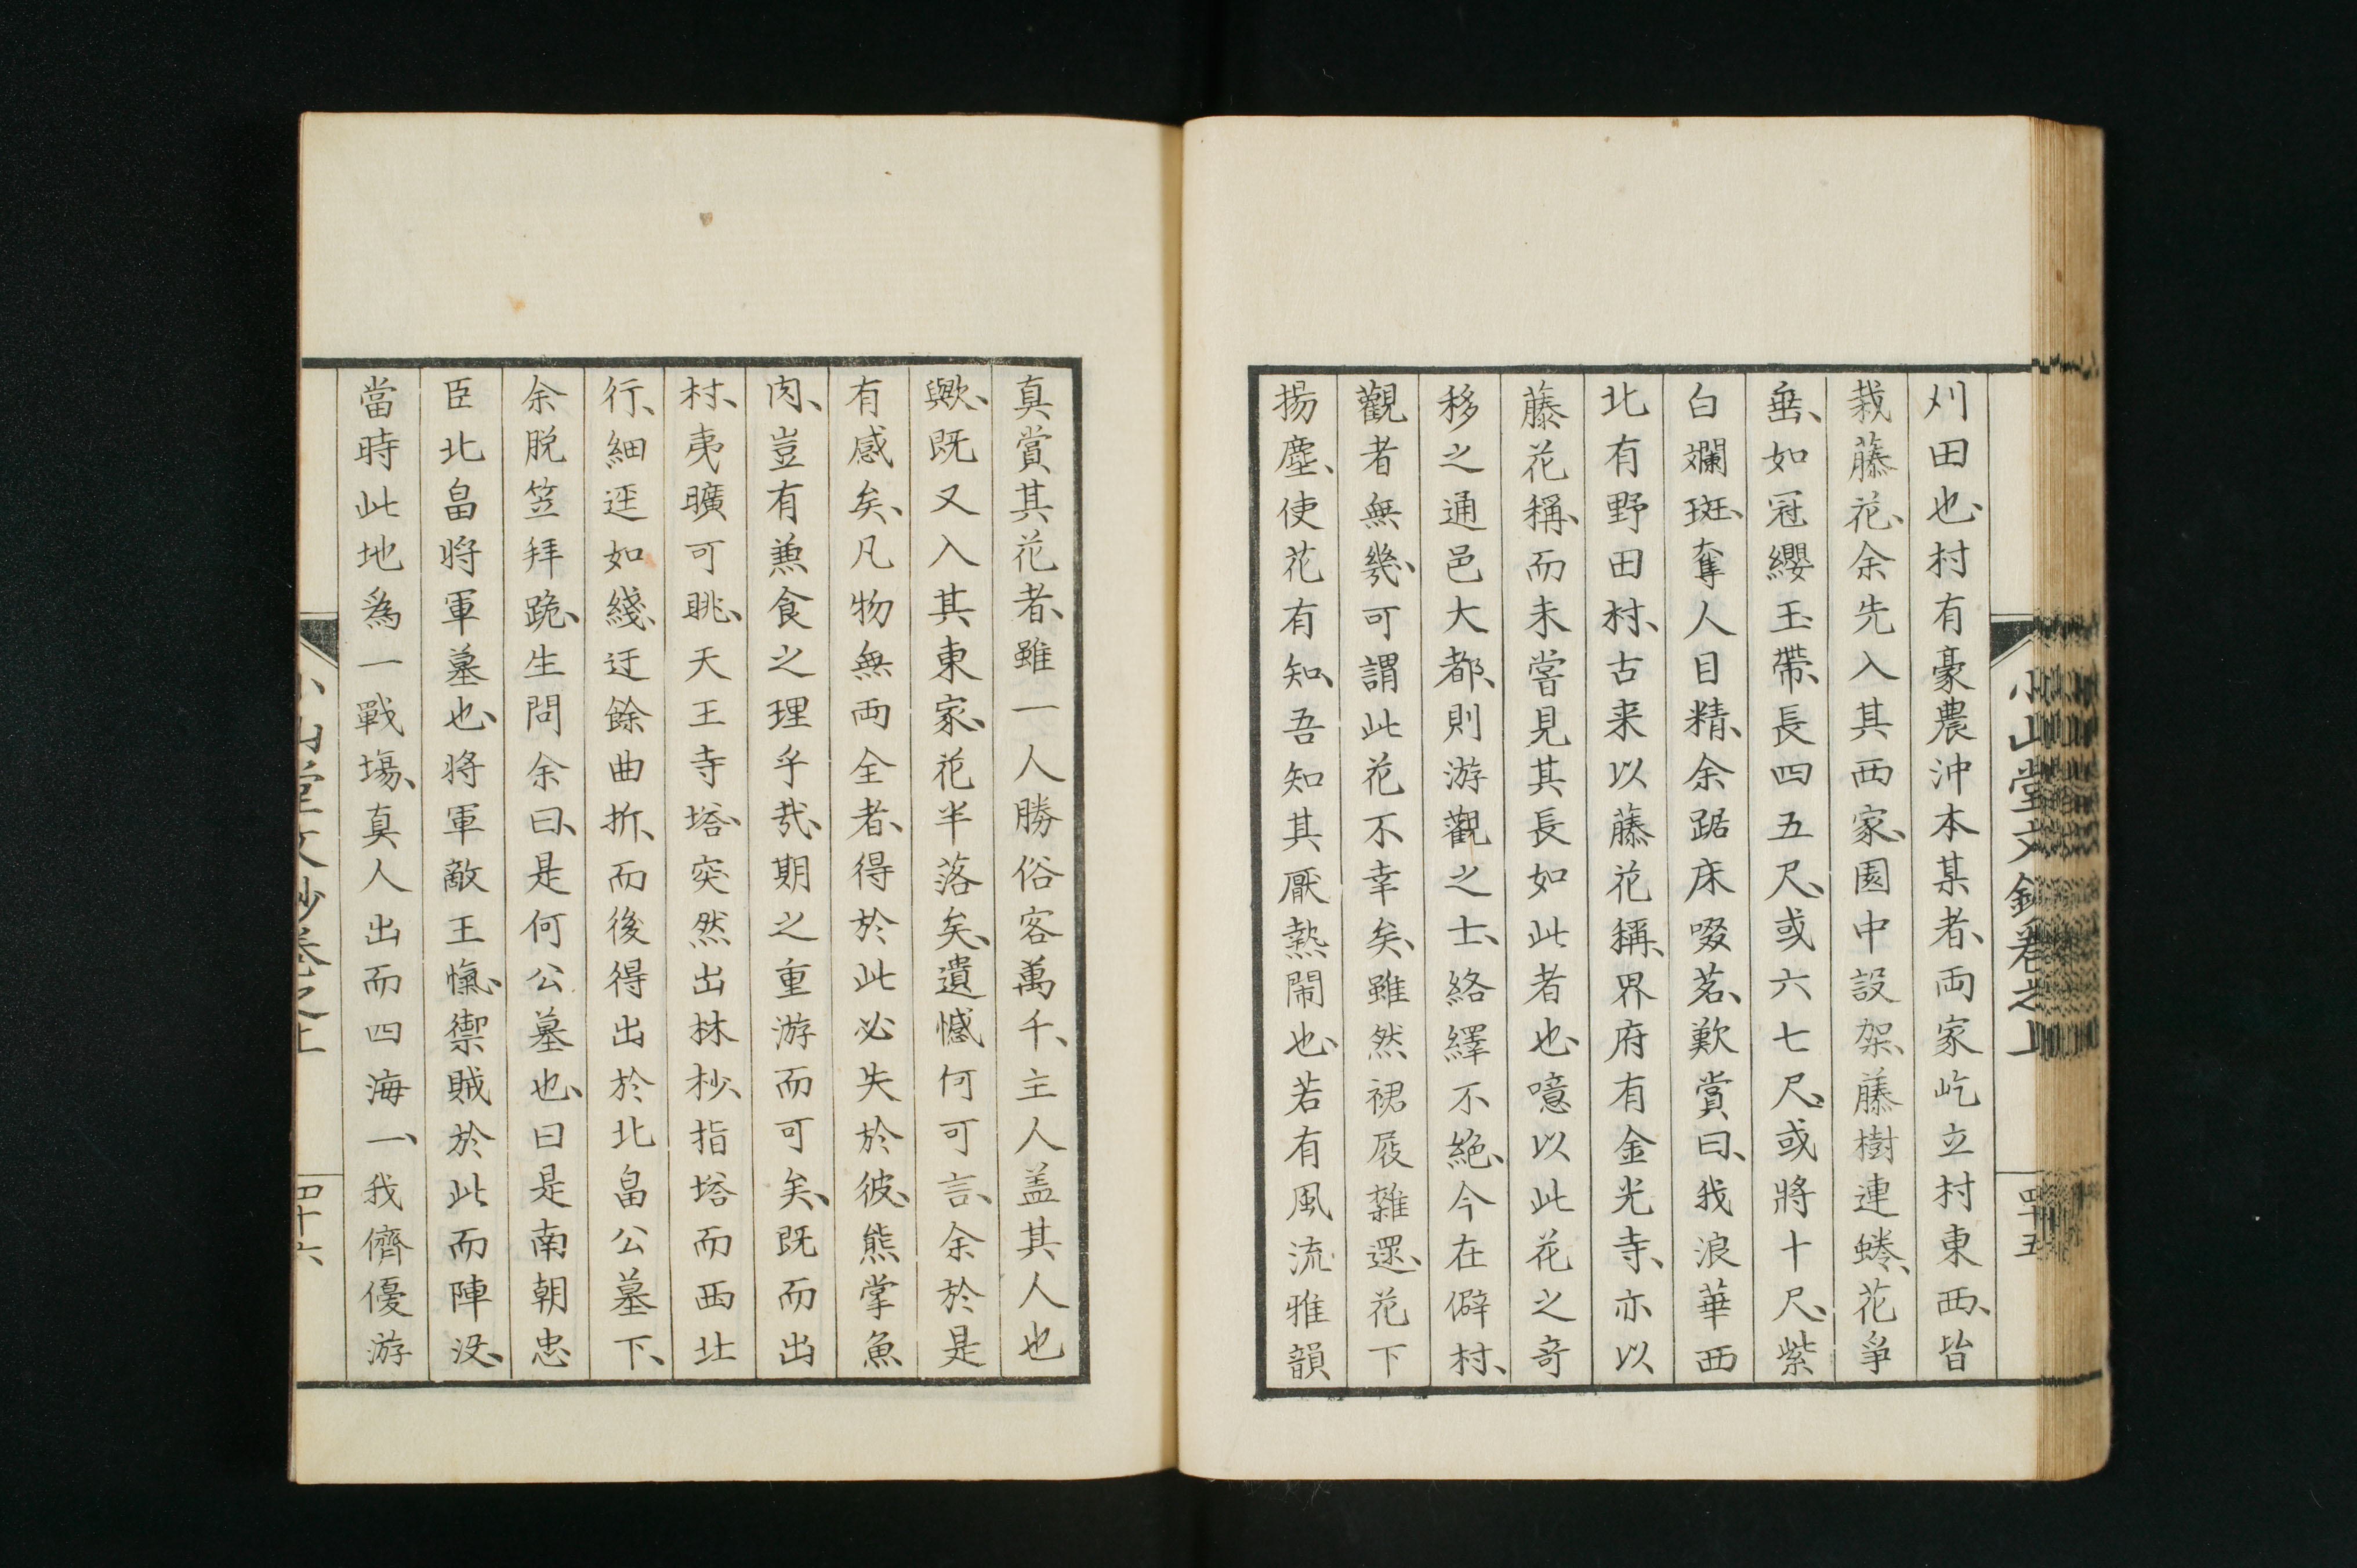 小山堂文鈔卷之上
四十五
刈田也、村有豪農沖本某者、両家屹立村東西、皆
栽藤花、余先入其西家、園中設架、藤樹連蜷、花爭
垂、如冠纓玉帶、長四五尺、或六七尺、或將十尺、紫
白斓斑、奪人目精、余踞床啜茗、歎賞曰、我浪華西
北有野田村、古来以藤花稱、界府有金光寺、亦以
藤花稱、而未嘗見其長如此者也、噫以此花之奇
移之通邑大都、則游觀之士、絡繹不絶、今在僻村、
觀者無幾、可謂此花不幸矣、雖然裙屐雜遝、花下
揚塵、使花有知、吾知其厭熱鬧也、若有風流雅韻
真賞其花者、雖一人勝俗客萬千、主人盖其人也
歟、既又入其東家、花半落矣、遺憾何可言、余於是
有感矣、凡物無両全者、得於此必失於彼、熊掌魚
肉、豈有兼食之理乎哉、期之重游而可矣、既而出
村、夷曠可眺、天王寺塔、突然出林杪、指塔而西北
行、細逕如綫、迂餘曲折、而後得出於北畠公墓下、
余脱笠拜跪、生問余曰、是何公墓也、曰是南朝忠
臣北畠将軍墓也、将軍敵王愾、禦賊於此而陣沒、
當時此地為一戰場、真人出而四海一、我儕優游
小山堂文鈔卷之上
四十六